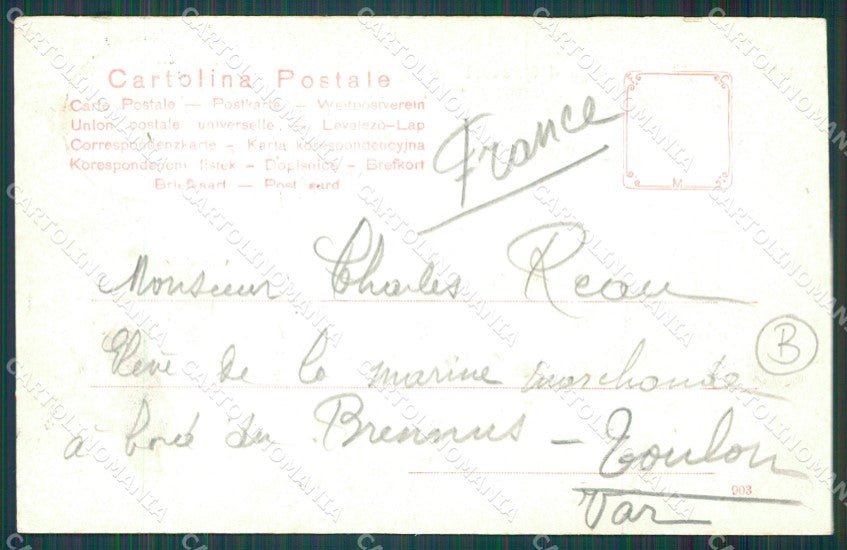 Cartolina Postale
Carte Postale — Postkarte — Weltpostverein
Union postale universelle — Levelezö-Lap
Correspondenzkarte — Karta korespondencyjna
Korespondencni listek — Dopisnice — Brefkort
Briefkaart — Post card
France
F C
M
Monsieur Charles Reau
Elève de la marine marchande
B
à bord du Brennus — Toulon
903
Var
CARTOLINOMANIA